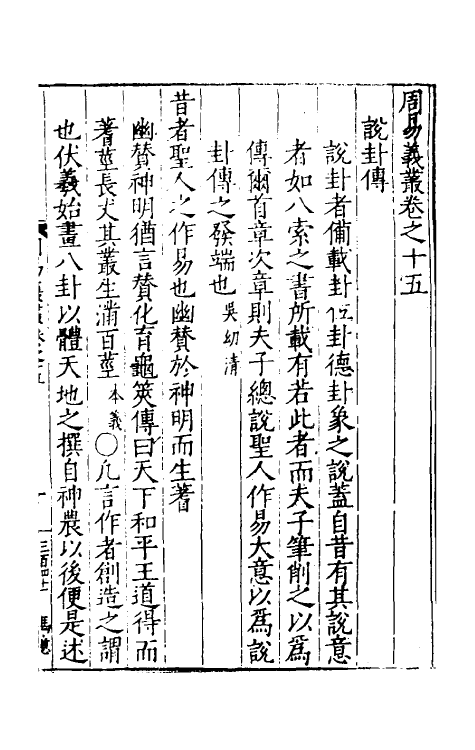 周易義叢卷之十五
說卦傳
說卦者備載卦位卦德卦象之說蓋自昔有其說意
者如八索之書所載有若此者而夫子筆削之以爲
傳爾首章次章則夫子總說聖人作易大意以爲說
卦傳之發端也吳幼清
昔者聖人之作易也幽賛於神明而生蓍
幽賛神明猶言賛化育龜筴傳曰天下和平王道得而
蓍莖長丈其叢生滿百莖本義○凡言作者創造之謂
也伏羲始畫八卦以體天地之撰自神農以後便是述